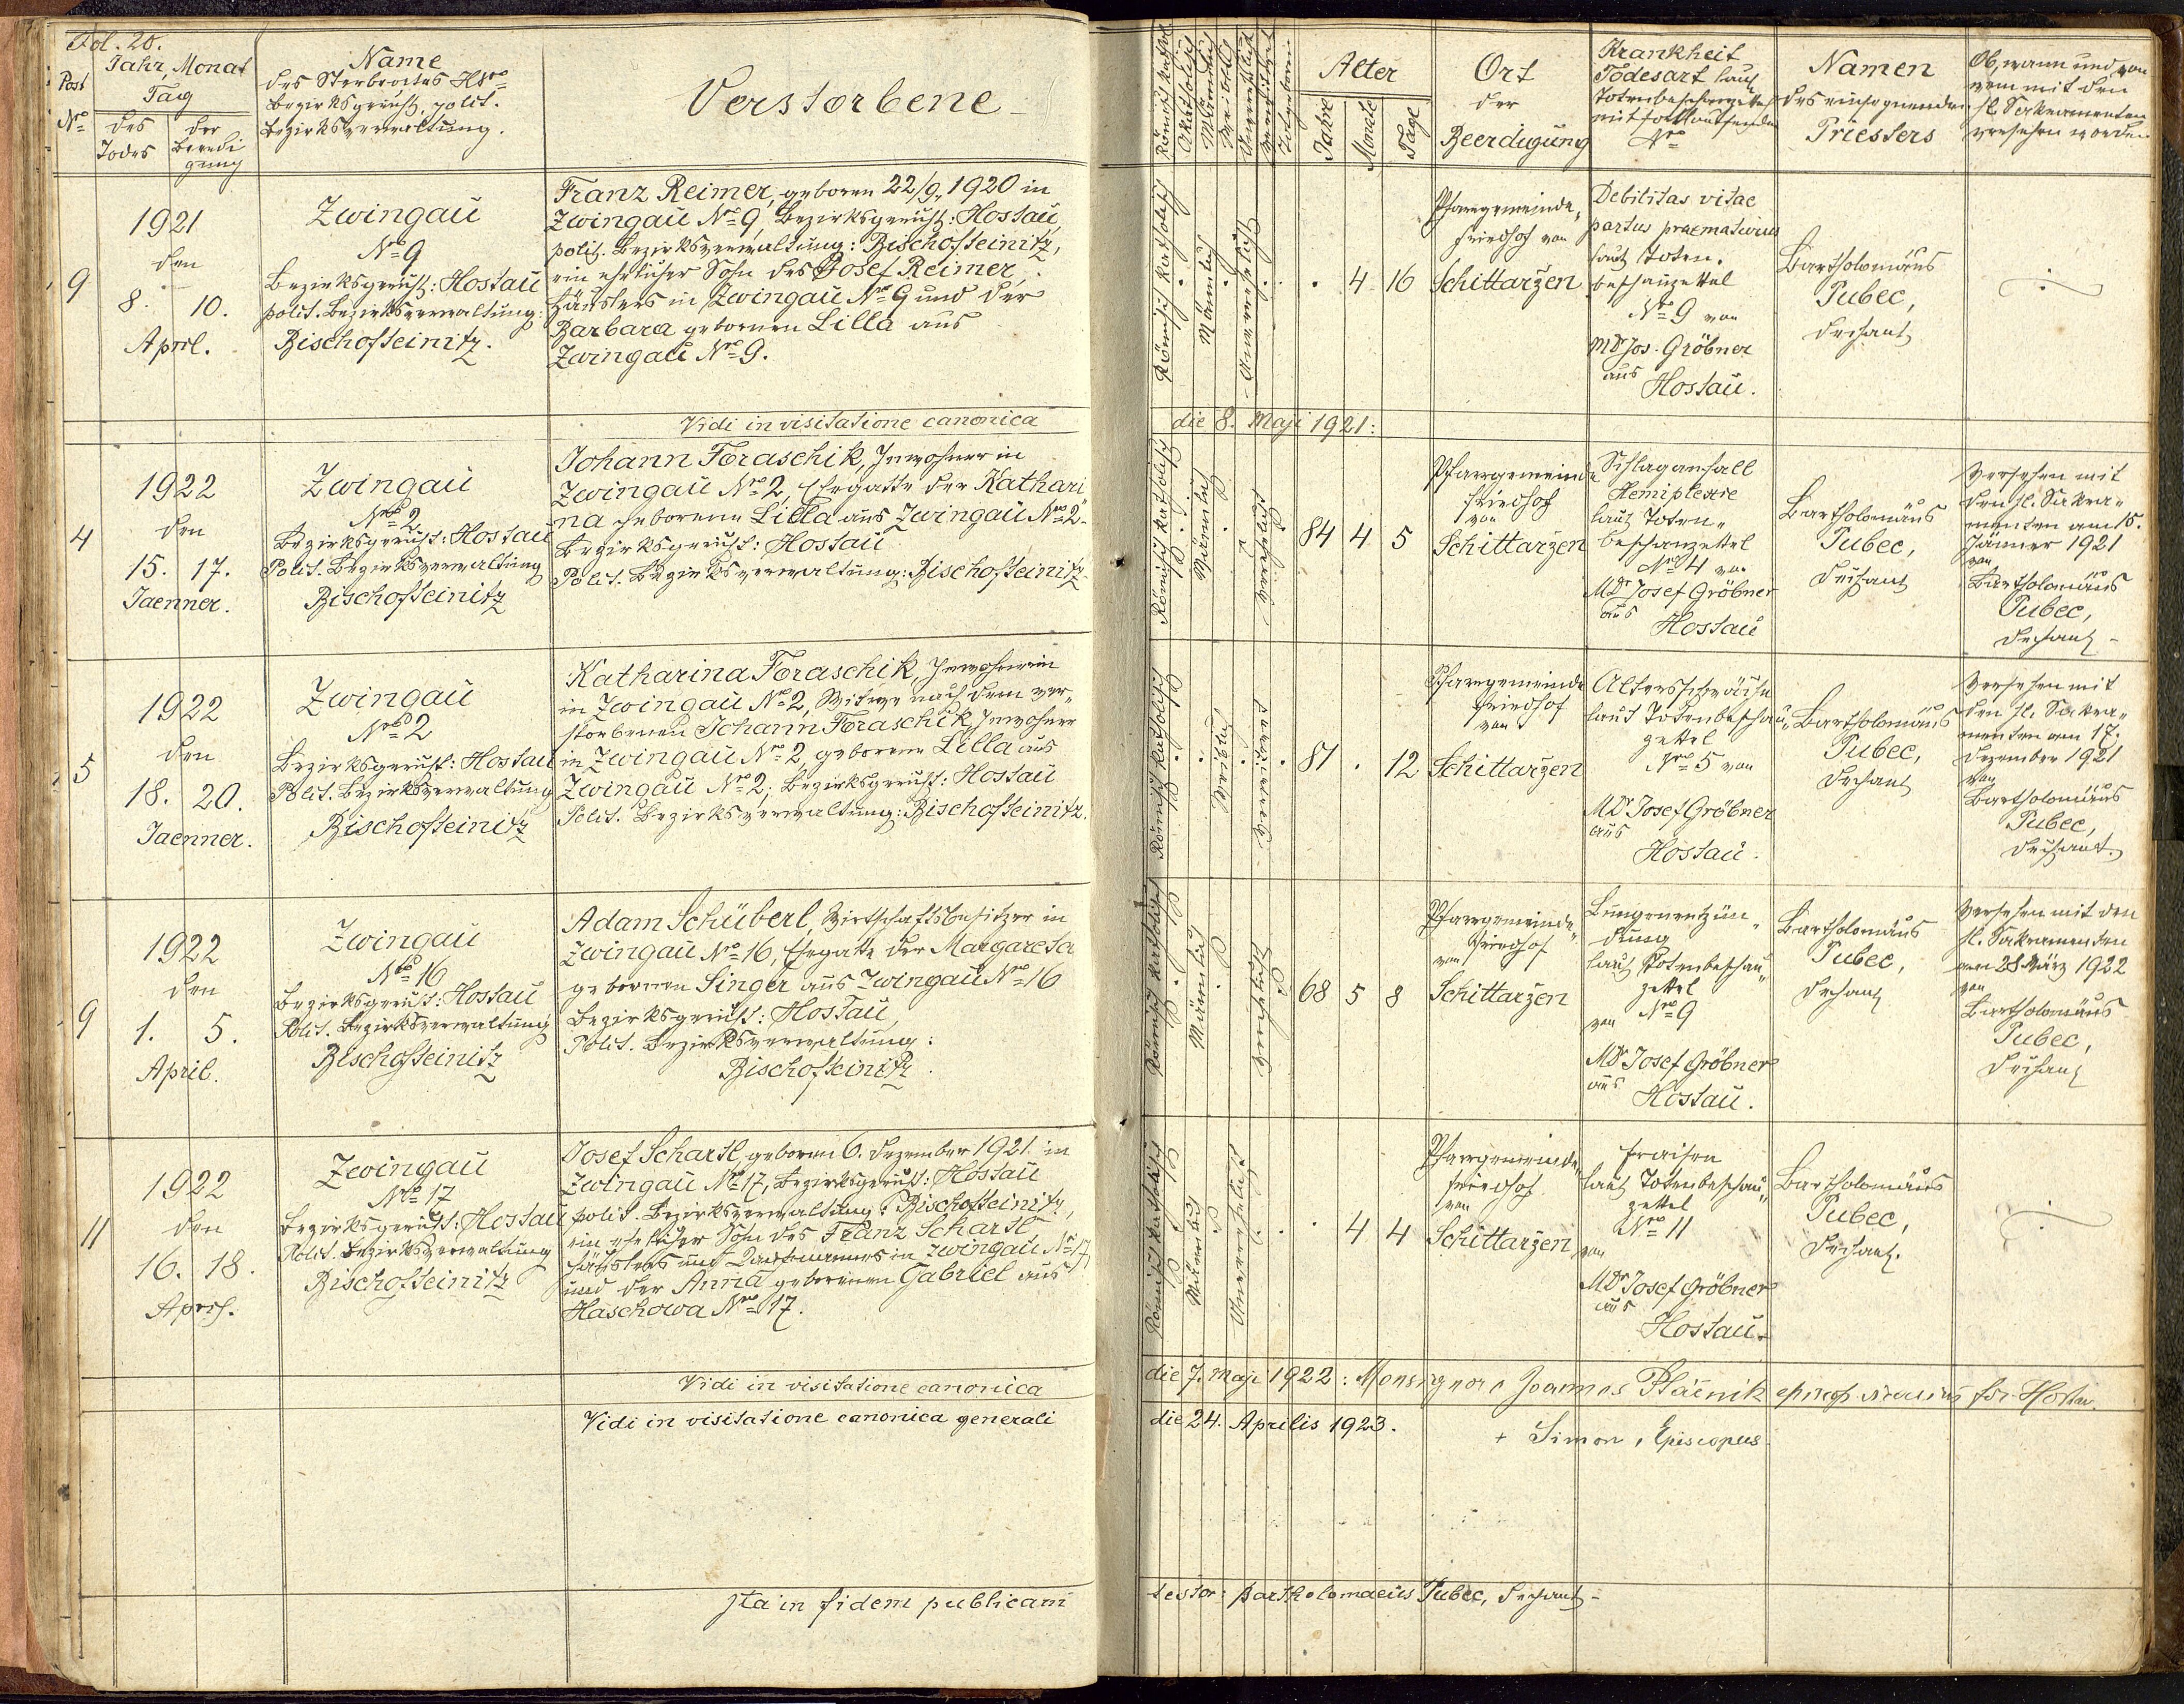 Fol. 20.
Post
Nro
Jahr, Monat
Tag
des
Todes
der
Beerdi
gung
Name
des Sterbeortes Nro
Bezirksgericht, polit.
Bezirksverwaltung.
Verstorbene
Römisch katholisch
Akatholisch
Männlich
Weiblich
Unverehelicht
Verehelicht
Totgeboren
Alter
Jahre
Monate
Tage
Ort
der
Beerdigung
Krankheit
Todesart laut
Totenbeschauzettel
mit fortlaufenden
Nro
Namen
des einsegnenden
Priesters
Ob, wann und von
wem mit den
hl. Sakramenten
versehen worden
9
1921
den
8. 10.
April.
Zwingau
Nro 9
Bezirksgericht: Hostau
polit. Bezirksverwaltung:
Bischofteinitz.
Franz Reimer, geboren 22/9. 1920 in
Zwingau Nro 9, Bezirksgericht: Hostau,
polit. Bezirksverwaltung: Bischofteinitz,
ein ehelicher Sohn des Josef Reimer,
Häuslers in Zwingau Nro 9 und der
Barbara gebornen Lilla aus
Zwingau Nro 9.
Römisch katholisch
Männlich
Unverehelicht
. 4 16
Pfarrgemeinde-
friedhof von
Schittarzen
Debilitas vitae
partus praematurus
laut Toten-
beschauzettel
Nro 9 von
MDr Jos. Gröbner
aus
Hostau.
Bartholomäus
Pubec,
Dechant
Vidi in visitatione canonica
die 8. Maji 1921:
4
1922
den
15. 17.
Jaenner.
Zwingau
Nro 2
Bezirksgericht: Hostau
Polit. Bezirksverwaltung
Bischofteinitz
Johann Foraschik, Inwohner in
Zwingau Nro 2, Ehegatte der Kathari
na geborenen Lilla aus Zwingau Nro 2
Bezirksgericht: Hostau
Polit. Bezirksverwaltung: Bischofteinitz.
Römisch katholisch
Männlich
Verehelicht
84 4 5
Pfarrgemeinde
friedhof
von
Schittarzen
Schlaganfall
Hemiplexie
laut Toten-
beschauzettel
Nro 4 von
MDr Josef Gröbner
aus
Hostau
Bartholomäus
Pubec,
Dechant
Versehen mit
den hl. Sakra-
menten am 15.
Jänner 1921
von
Bartholomäus
Pubec,
Dechant
5
1922
den
18. 20.
Jaenner.
Zwingau
Nro 2
Bezirksgericht: Hostau
Polit. Bezirksverwaltung
Bischofteinitz
Katharina Foraschik, Inwohnerin
in Zwingau Nro 2, Witwe nach dem ver-
storbenen Johann Foraschik Inwohner
in Zwingau Nro 2, geborene Lilla aus
Zwingau Nro 2; Bezirksgericht: Hostau
Polit. Bezirksverwaltung: Bischofteinitz.
Römisch katholisch
Weiblich
Verwitwet
81 . 12
Pfarrgemeinde
friedhof
von
Schittarzen
Altersschwäche
laut Totenbeschau-
zettel
Nro 5 von
MDr Josef Gröbner
aus
Hostau.
Bartholomäus
Pubec,
Dechant
Versehen mit
den hl. Sakra-
menten am 17.
Dezember 1921
von
Bartholomäus
Pubec,
Dechant.
9
1922
den
1. 5.
April.
Zwingau
Nro 16
Bezirksgericht: Hostau
Polit. Bezirksverwaltung
Bischofteinitz
Adam Schüberl, Wirtschaftsbesitzer in
Zwingau Nro 16, Ehegatte der Margareta
gebornen Singer aus Zwingau Nro 16
Bezirksgericht: Hostau,
Polit. Bezirksverwaltung:
Bischofteinitz.
Römisch katholisch
Männlich
Verehelicht
68 5 8
Pfarrgemeinde-
friedhof
von
Schittarzen
Lungenentzün-
dung
laut Totenbeschau-
zettel
von Nro 9
MDr Josef Gröbner
aus
Hostau.
Bartholomäus
Pubec,
Dechant
Versehen mit den
hl. Sakramenten
am 28 März 1922
von
Bartholomäus
Pubec,
Dechant
11
1922
den
16. 18.
April.
Zwingau
Nro 17
Bezirksgericht: Hostau
Polit. Bezirksverwaltung
Bischofteinitz
Josef Schartl, geboren 6. Dezember 1921 in
Zwingau Nro 17, Bezirksgericht: Hostau
polit. Bezirksverwaltung: Bischofteinitz,
ein ehelicher Sohn des Franz Schartl
Häuslers und in Zwingau Nro 17
und der Anna geborenen Gabriel aus
Haschowa Nro 17.
Römisch katholisch
Männlich
Unverehelicht
. 4 4
Pfarrgemeinde-
friedhof
von
Schittarzen
Fraisen
laut Totenbeschau-
zettel
Nro 11
von
MDr Josef Gröbner
aus
Hostau.
Bartholomäus
Pubec,
Dechant.
Vidi in visitatione canonica
die 7. Maji 1922: Monsignore Joannes
Vidi in visitatione canonica generali
die 24. Aprilis 1923.
+ Simon, Episcopus
Ita in fidem publicam
testor: Bartholomaeus Pubec, Dechant